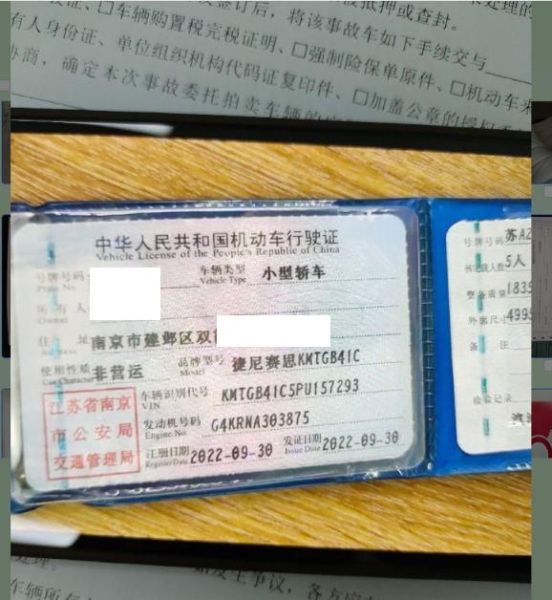 证、□车辆购置税完税证明、□强制险保单原件、□机动车来
有人身份证、单位组织机构代码证复印件、□加盖公章的授权
协商，确定本次事故委托拍卖车辆的
中华人民共和国机动车行驶证
Vehicle License of the People's Republic of China
号牌号码
Plate No.
车辆类型
Vehicle Type
小型轿车
所有人
Owner
住址
Address
南京市建邺区双
使用性质
Use Character
非营运
品牌型号
Model
捷尼赛思KMTGB41C
江苏省南京
市公安局
交通管理局
车辆识别代号
VIN
KMTGB41C5PU157293
发动机号码
Engine No.
G4KRNA303875
注册日期
Register Date
2022-09-30
发证日期
Issue Date
2022-09-30
号牌号码
苏A
核定载人数
5人
整备质量
1835
外廓尺寸
499
备注
检验记录